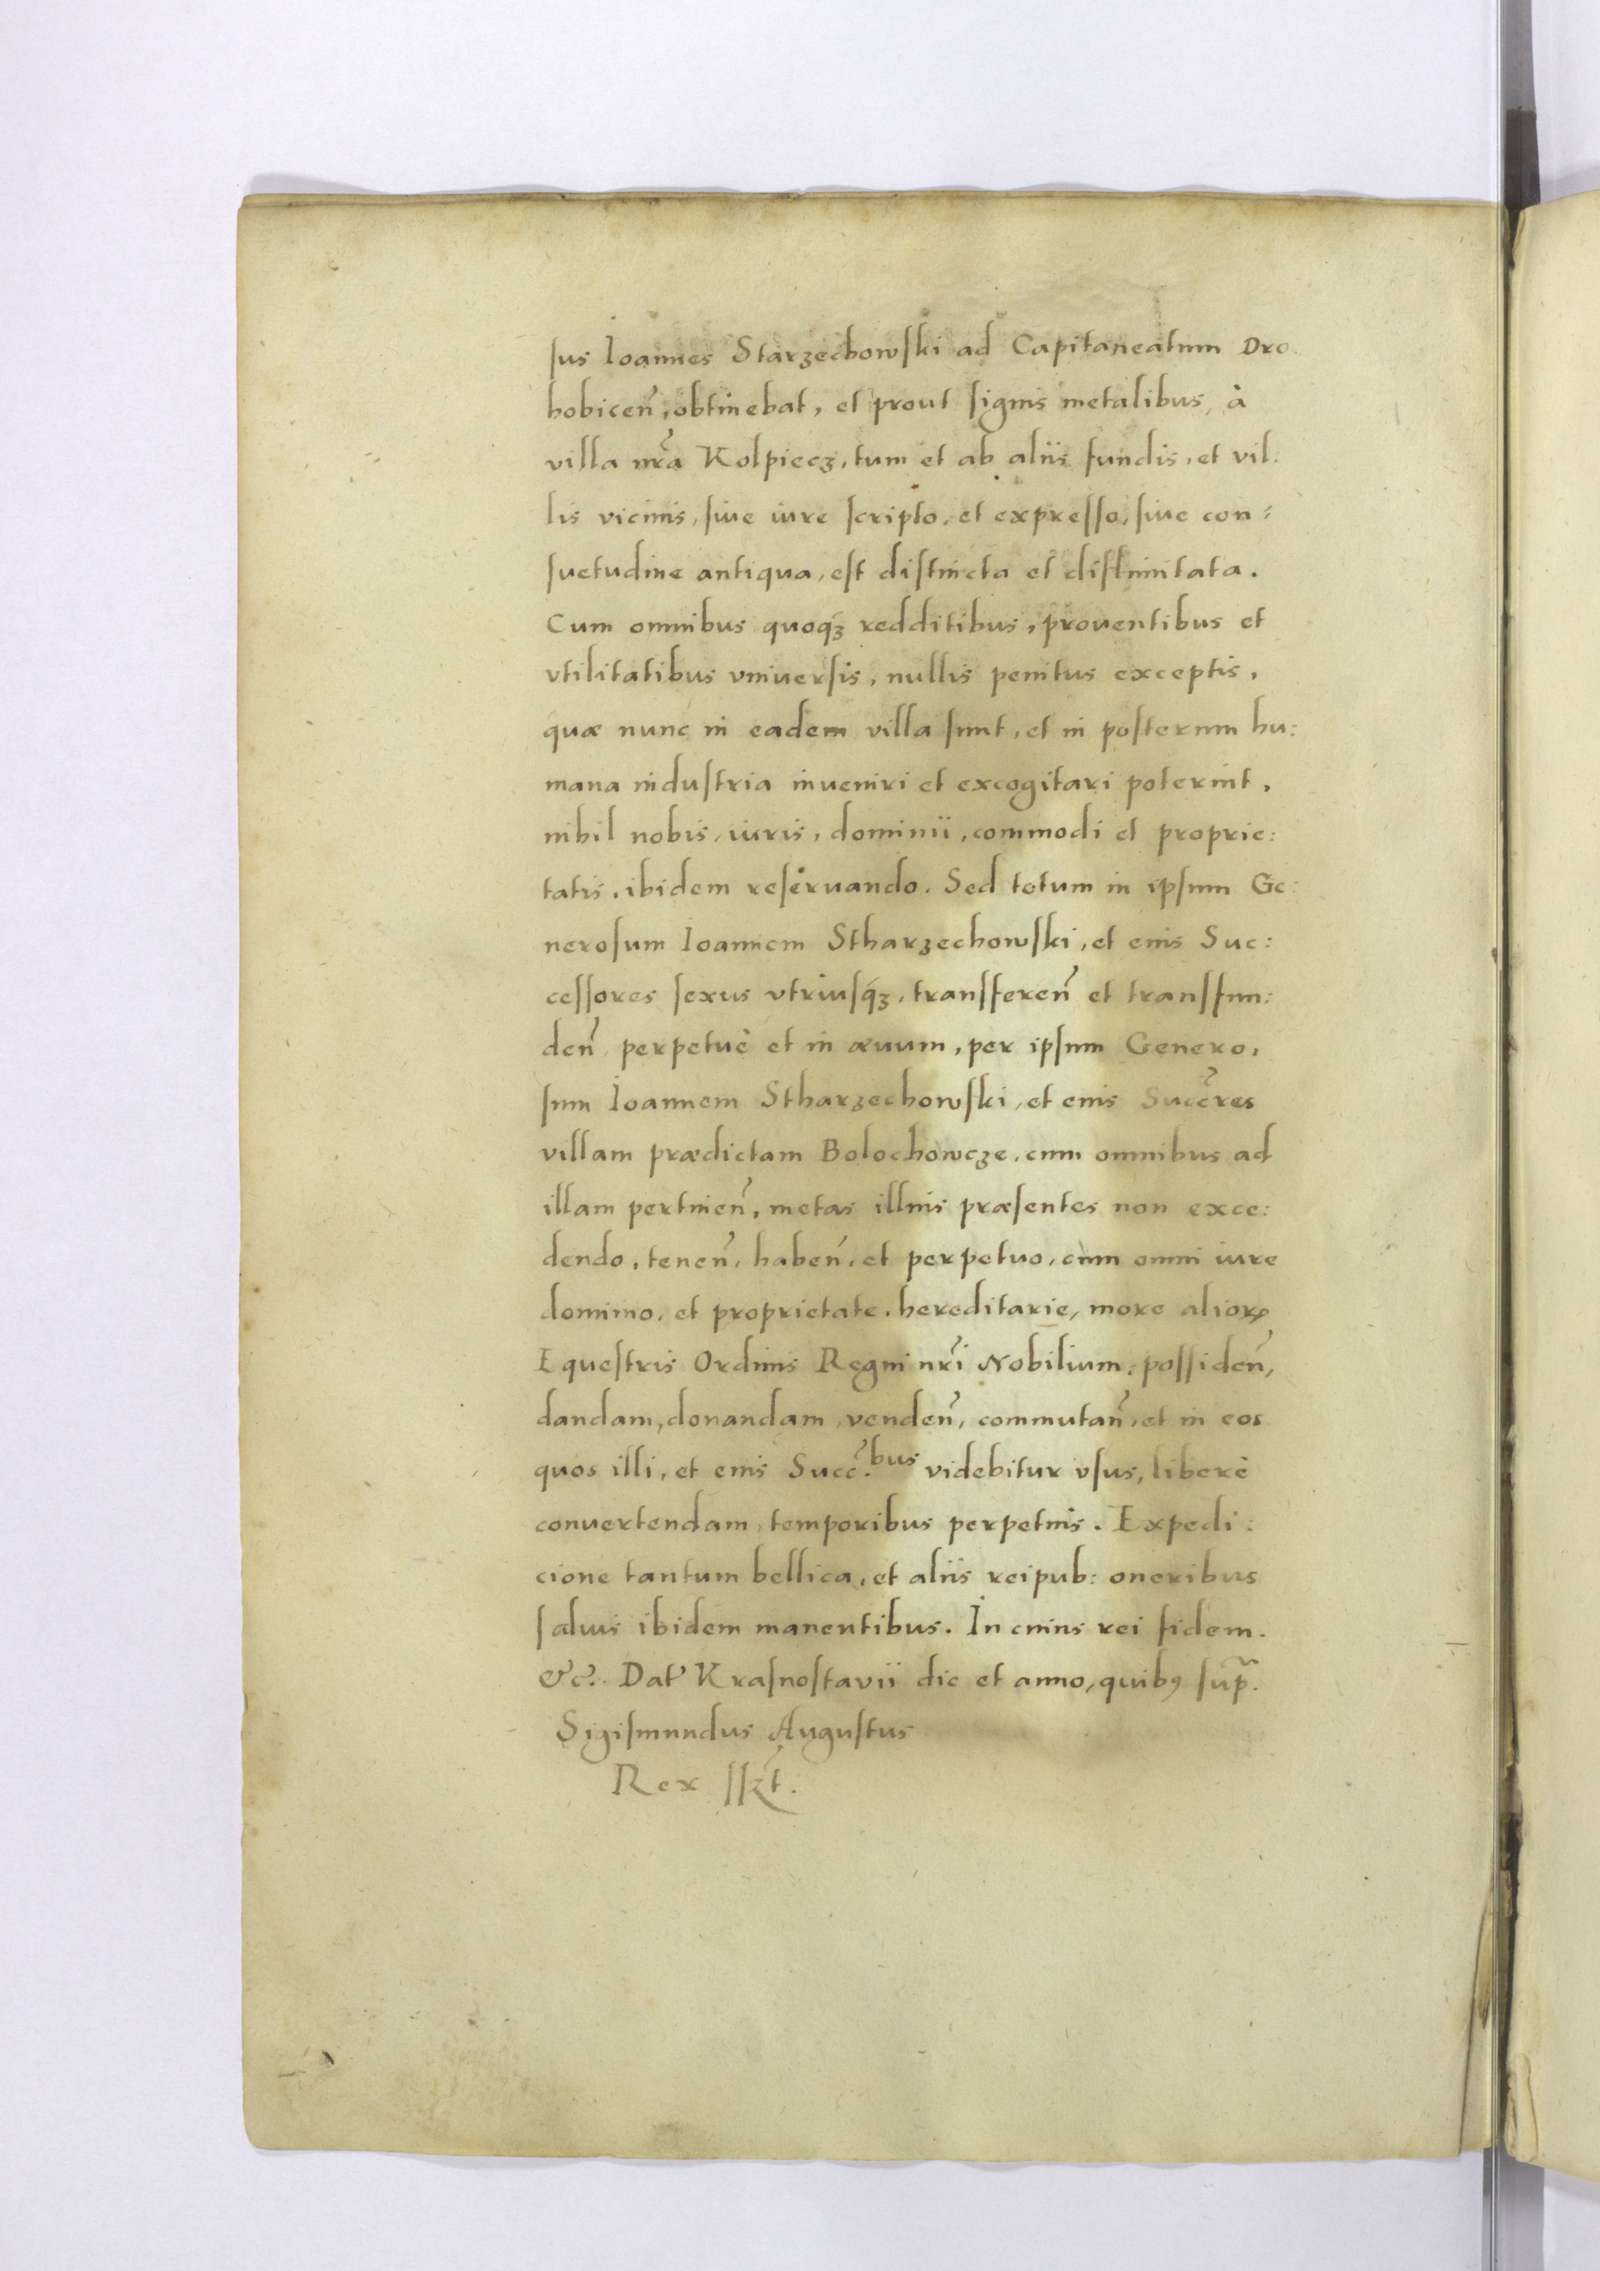 sus Ioannes Starzechowski ad Capitaneatum Dro
hobicen̄, obtinebat, et prout signis metalibus, à
villa nr̃a Kolpiecz, tum et ab aliis fundis, et vil:
lis vicinis, siue iure scripto, et expresso, siue con:
suetudine antiqua, est distincta et dislimitata.
Cum omnibus quoqꝫ redditibus, prouentibus et
vtilitatibus vniuersis, nullis penitus exceptis,
quæ nunc in eadem villa sunt, et in posterum hu:
mana industria inueniri et excogitari poterint,
nihil nobis, iuris, dominii, commodi et proprie:
tatis, ibidem reseruando. Sed totum in ipsum Ge:
nerosum Ioannem Stharzechowski, et eius Suc:
cessores sexus vtriusqꝫ, transferen̄ et transfun:
den̄ perpetuè et in æuum, per ipsum Genero,
sum Ioannem Stharzechowski, et eius Succ̃res
villam prædictam Bolochowcze, cum omnibus ad
illam pertinen̄, metas illius præsentes non exce:
dendo, tenen̄, haben̄, et perpetuo, cum omni iure
dominio, et proprietate, hereditarie, more alioꝝ
Equestris Ordinis Regni nr̃i Nobilium, possiden̄,
dandam, donandam, venden̄, commutan̄, et in eos
quos illi, et eius Succ̃.bus videbitur vsus, liberè
convertendam, temporibus perpetuis. Expedi:
cione tantum bellica, et aliis reipub: oneribus
saluis ibidem manentibus. In cuius rei fidem.
&c̃. Dat̃ Krasnostavii die et anno, quibꝰ sup̃.
Sigismundus Augustus
Rex sszt.